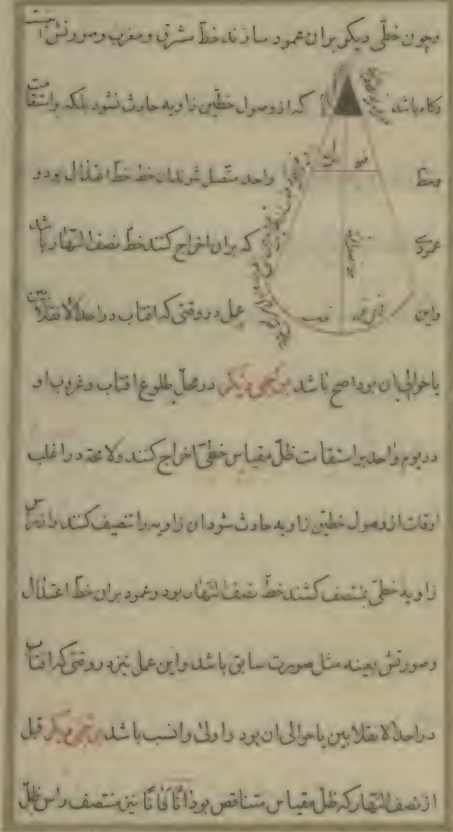 وچون خطی دیگر بران عمود سازند خط مشرق و مغرب و صورتش
وگاه باشد که از وصول خطین زاویه حادث نشود بلکه براستقامت
وخط واحد متصل شوند ان خط خط اعتدال بود و
عمودی که بران اخراج کنند خط نصف النهار باشد
واین عمل در وقتی که افتاب در احدالانقلابین
یاحوالی ان بود اصح باشد دیگر در محل طلوع افتاب و غروب او
در یوم واحد براستقامت ظل مقیاس خطی اخراج کنند ولا محه در اغلب
اوقات از وصول خطین زاویه حادث شود ان زاویه را تنصیف کنند و از راس
زاویه خطی بمنتصف کشند خط نصف النهار بود و عمود بران خط اعتدال
وصورتش بعینه مثل صورت سابق باشد واین عمل نیز در وقتی که افتاب
در احدالانقلابین یاحوالی ان بود اولی وانسب باشد دیگر قبل
از نصف النهار که ظل مقیاس متناقص بود انًا فانًا نیز منتصف راس ظل